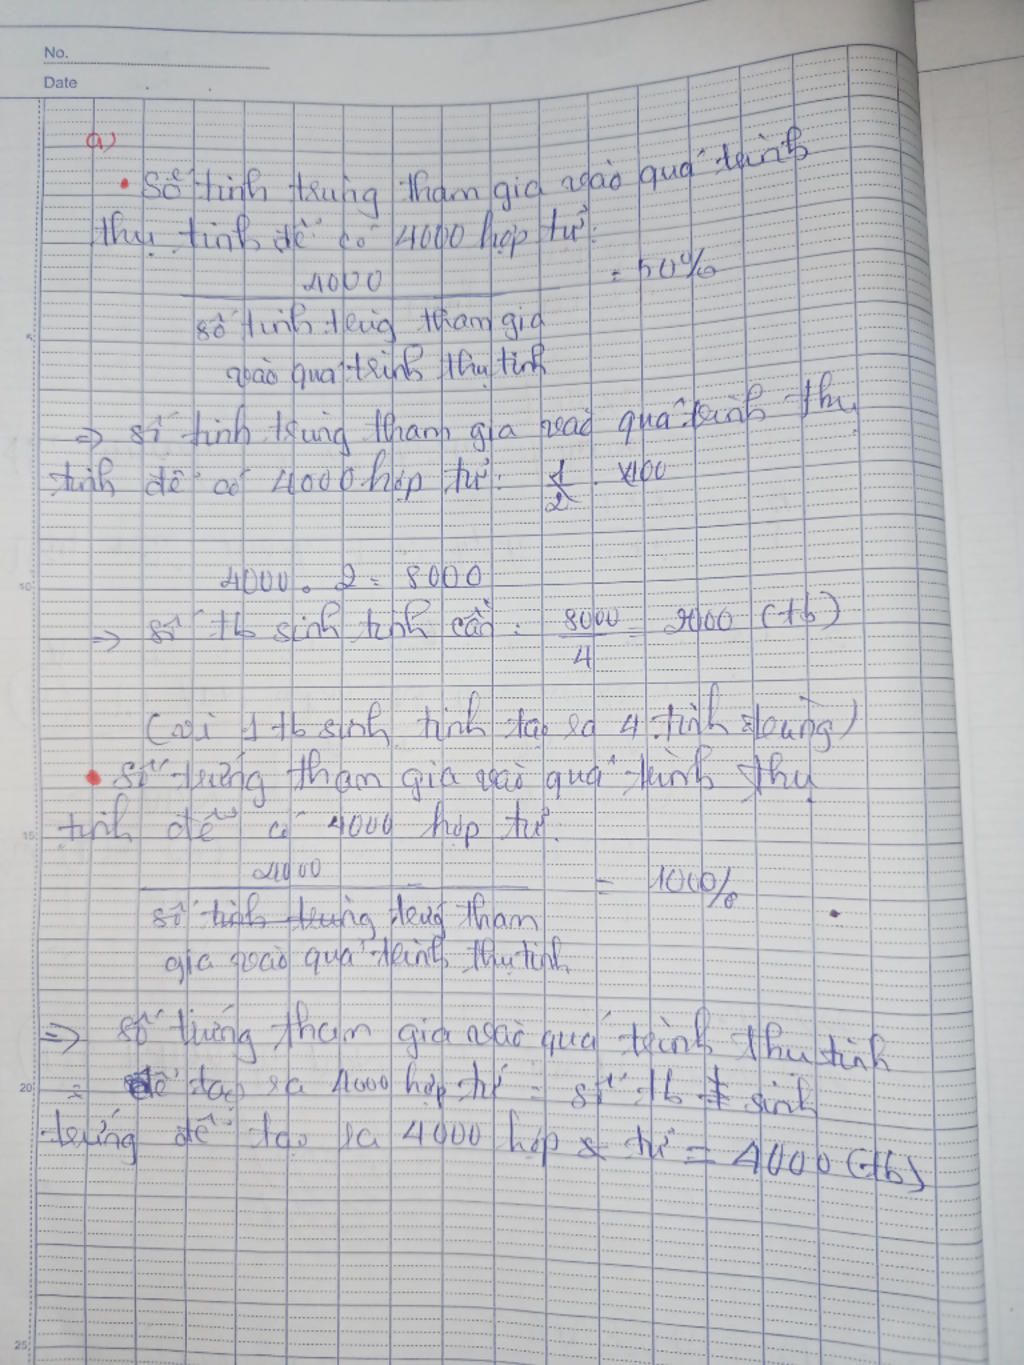 No.
Date
a)
• Số tinh trùng tham gia vào quá trình
thụ tinh để có 4000 hợp tử:
4000 = 50%
số tinh trùng tham gia
vào quá trình thụ tinh
=> số tinh trùng tham gia vào quá trình thụ
tinh để có 4000 hợp tử: 1/2 . x100
4000 . 2 = 8000
=> số tb sinh tinh cần : 8000/4 = 2000 (tb)
(vì 1 tb sinh tinh tạo ra 4 tinh trùng)
• số trứng tham gia vào quá trình thụ
tinh để có 4000 hợp tử.
4000 = 100%
số tinh trùng trứng tham
gia vào quá trình thụ tinh
=> số trứng tham gia vào quá trình thụ tinh
= để tạo ra 4000 hợp tử = số tb t sinh
trứng để tạo ra 4000 hợp tử = 4000 (tb)
5
10
15
20
25